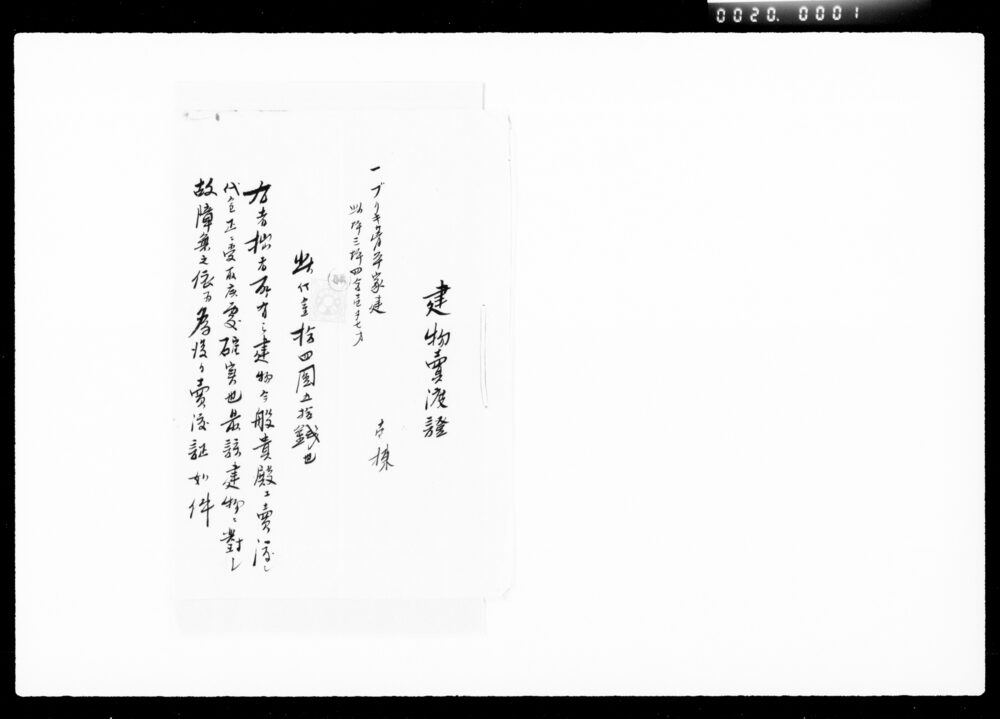 0020. 0001
建物賣渡證
一ブリキ葺平家建
壱棟
此坪三坪四合壱勺七才
此代金拾四圓五拾錢也
右者拙者所有ニ建物今般貴殿ニ賣渡し
代金正ニ受取候處確実也最該建物ニ對し
故障無之依而為後日賣渡証如件